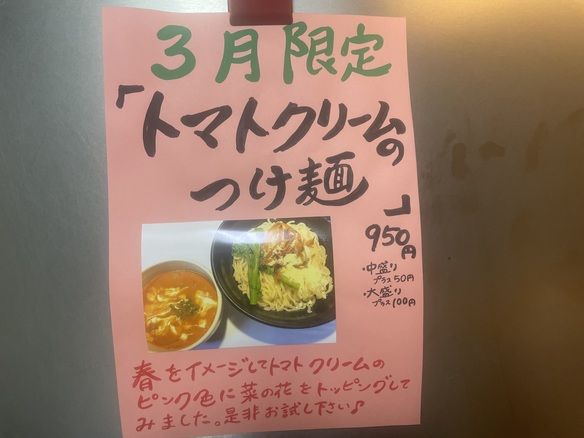 3月限定
「トマトクリームの
つけ麺」
950円
・中盛り
プラス50円
・大盛り
プラス100円
春をイメージしてトマトクリームの
ピンク色に菜の花をトッピングして
みました。是非お試し下さい♪